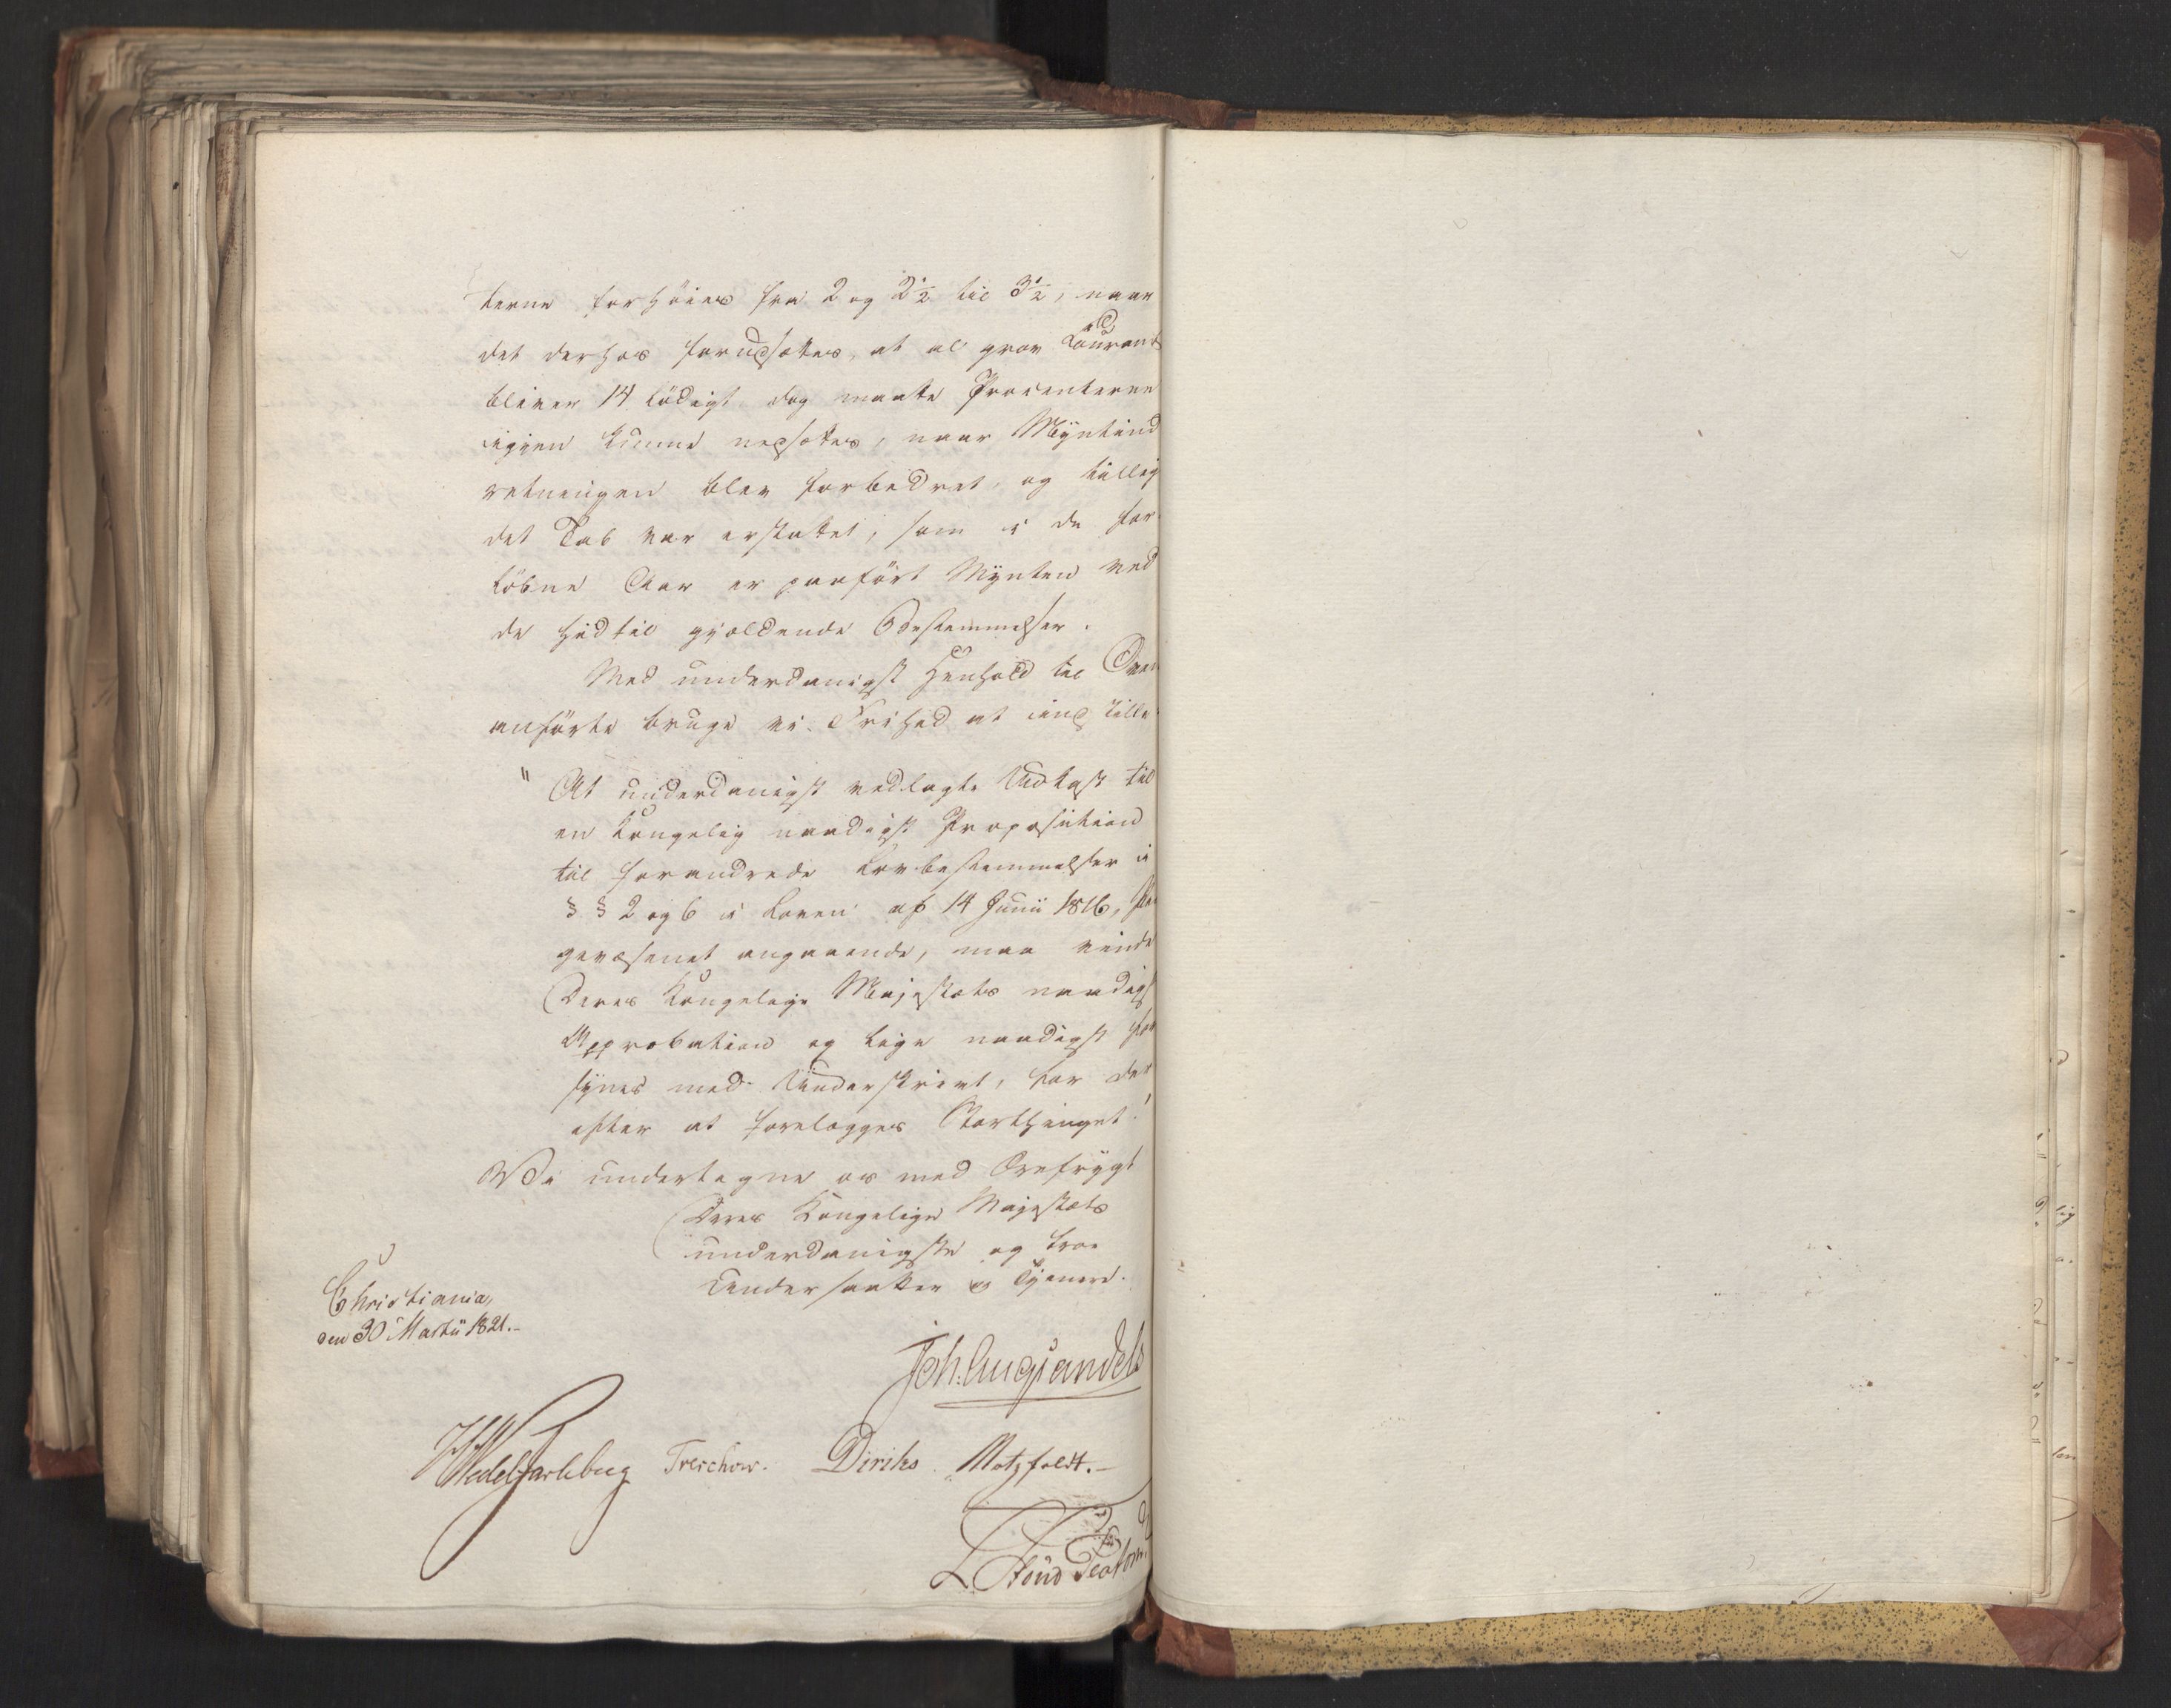 terne forhöies fra 2 og 2½ til 3½, naar
det derhos forudsættes, at al grov Courant
bliver 14 lödigt, dog maatte Procenterne
igjen kunne nedsættes, naar Myntind
retningen blev forbedret, og tillige
det Tab var erstattet, som i de for
löbne Aar er paafört Mynten ved
de hidtil gjældende Bestemmelser.
Med underdanigst Henhold til Oven
anförte bruge vi Frihed at indstille:
"At underdanigst vedlagte Udkast til
en Kongelig naadigst Proposition
til forandrede Lovbestemmelser i
§ § 2 og 6 i Loven af 14 Junii 1816,
gevæsenet angaaende, maa vinde
Deres Kongelige Majestæts naadigst
Approbation og lige naadigst for
synes med Underskrivt, for der
efter at forelægges Storthinget!
Vi undertegne os med Ærefrygt
Deres Kongelige Majestæts
underdanigste og troe
Undersaatter og Tjenere.
Christiania,
den 30 Martii 1821.-
Joh. Aug Sandels
HWedelJarlsberg Treschow. Diriks Motzfeldt.-